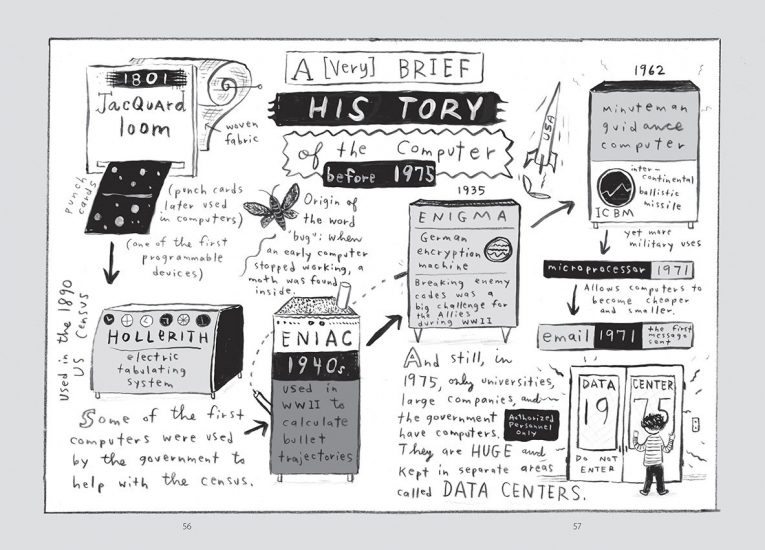 A [Very] BRIEF
HISTORY
of the Computer
before 1975
1801
JacQUArd
loom
woven
fabric
punch
cards
(punch cards
later used
in computers)
(one of the first
programmable
devices)
Used in the 1890
US Census
HOLLERITH
electric
tabulating
system
Some of the first
computers were used
by the government to
help with the census.
Origin of
the word
"bug": When
an early computer
stopped working, a
moth was found
inside.
ENIAC
1940s
used in
WWII to
calculate
bullet
trajectories
1935
ENIGMA
German
encryption
machine
Breaking enemy
codes was a
big challenge for
the Allies
during WWII
USA
1962
minuteman
guidance
computer
inter-
continental
ballistic
missile
ICBM
yet more
military uses
microprocessor 1971
Allows computers to
become cheaper
and smaller.
email 1971 the first
message
sent
And still, in
1975, only universities,
large companies, and
the government
have computers.
They are HUGE and
kept in separate areas
called DATA CENTERS.
Authorized
Personnel
Only
DATA CENTER
19 75
DO NOT
ENTER
56
57